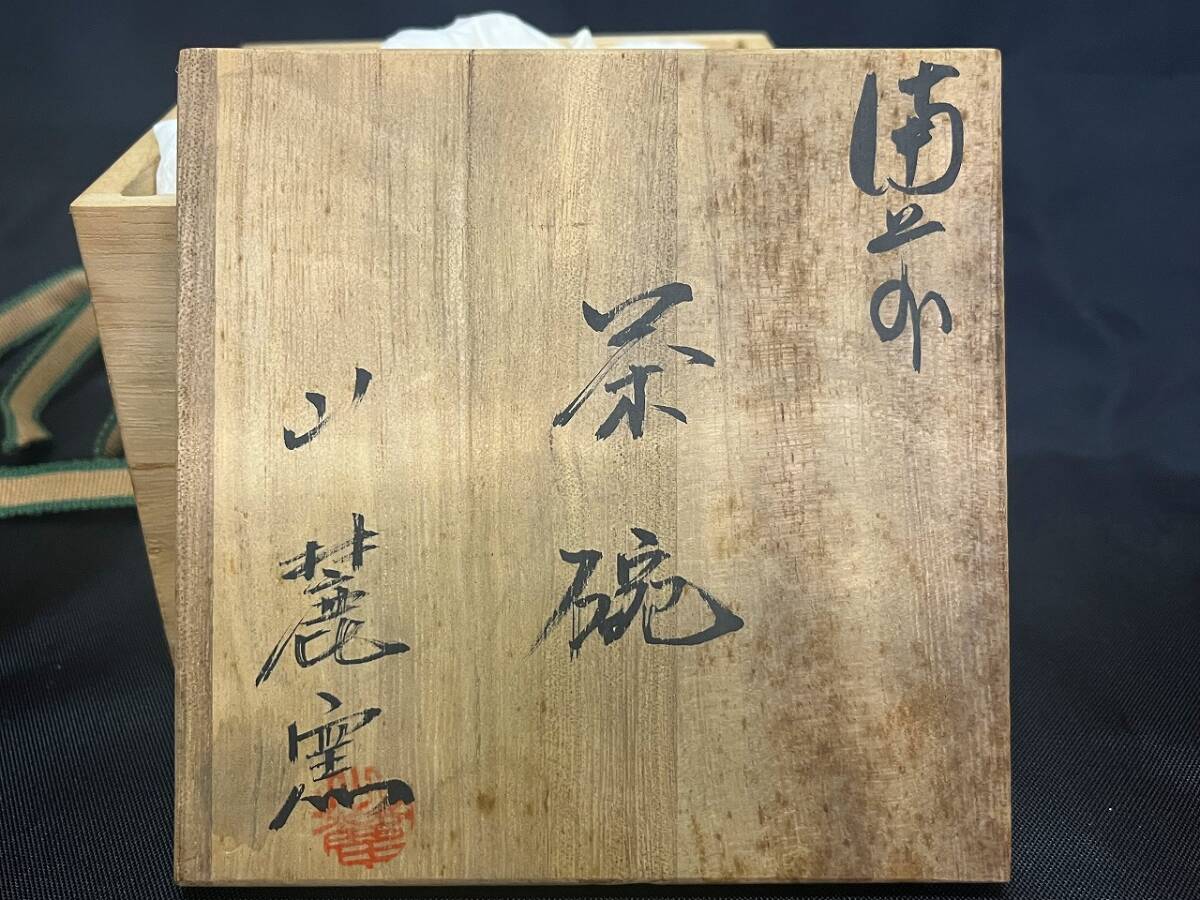 備前
茶碗
山麓窯